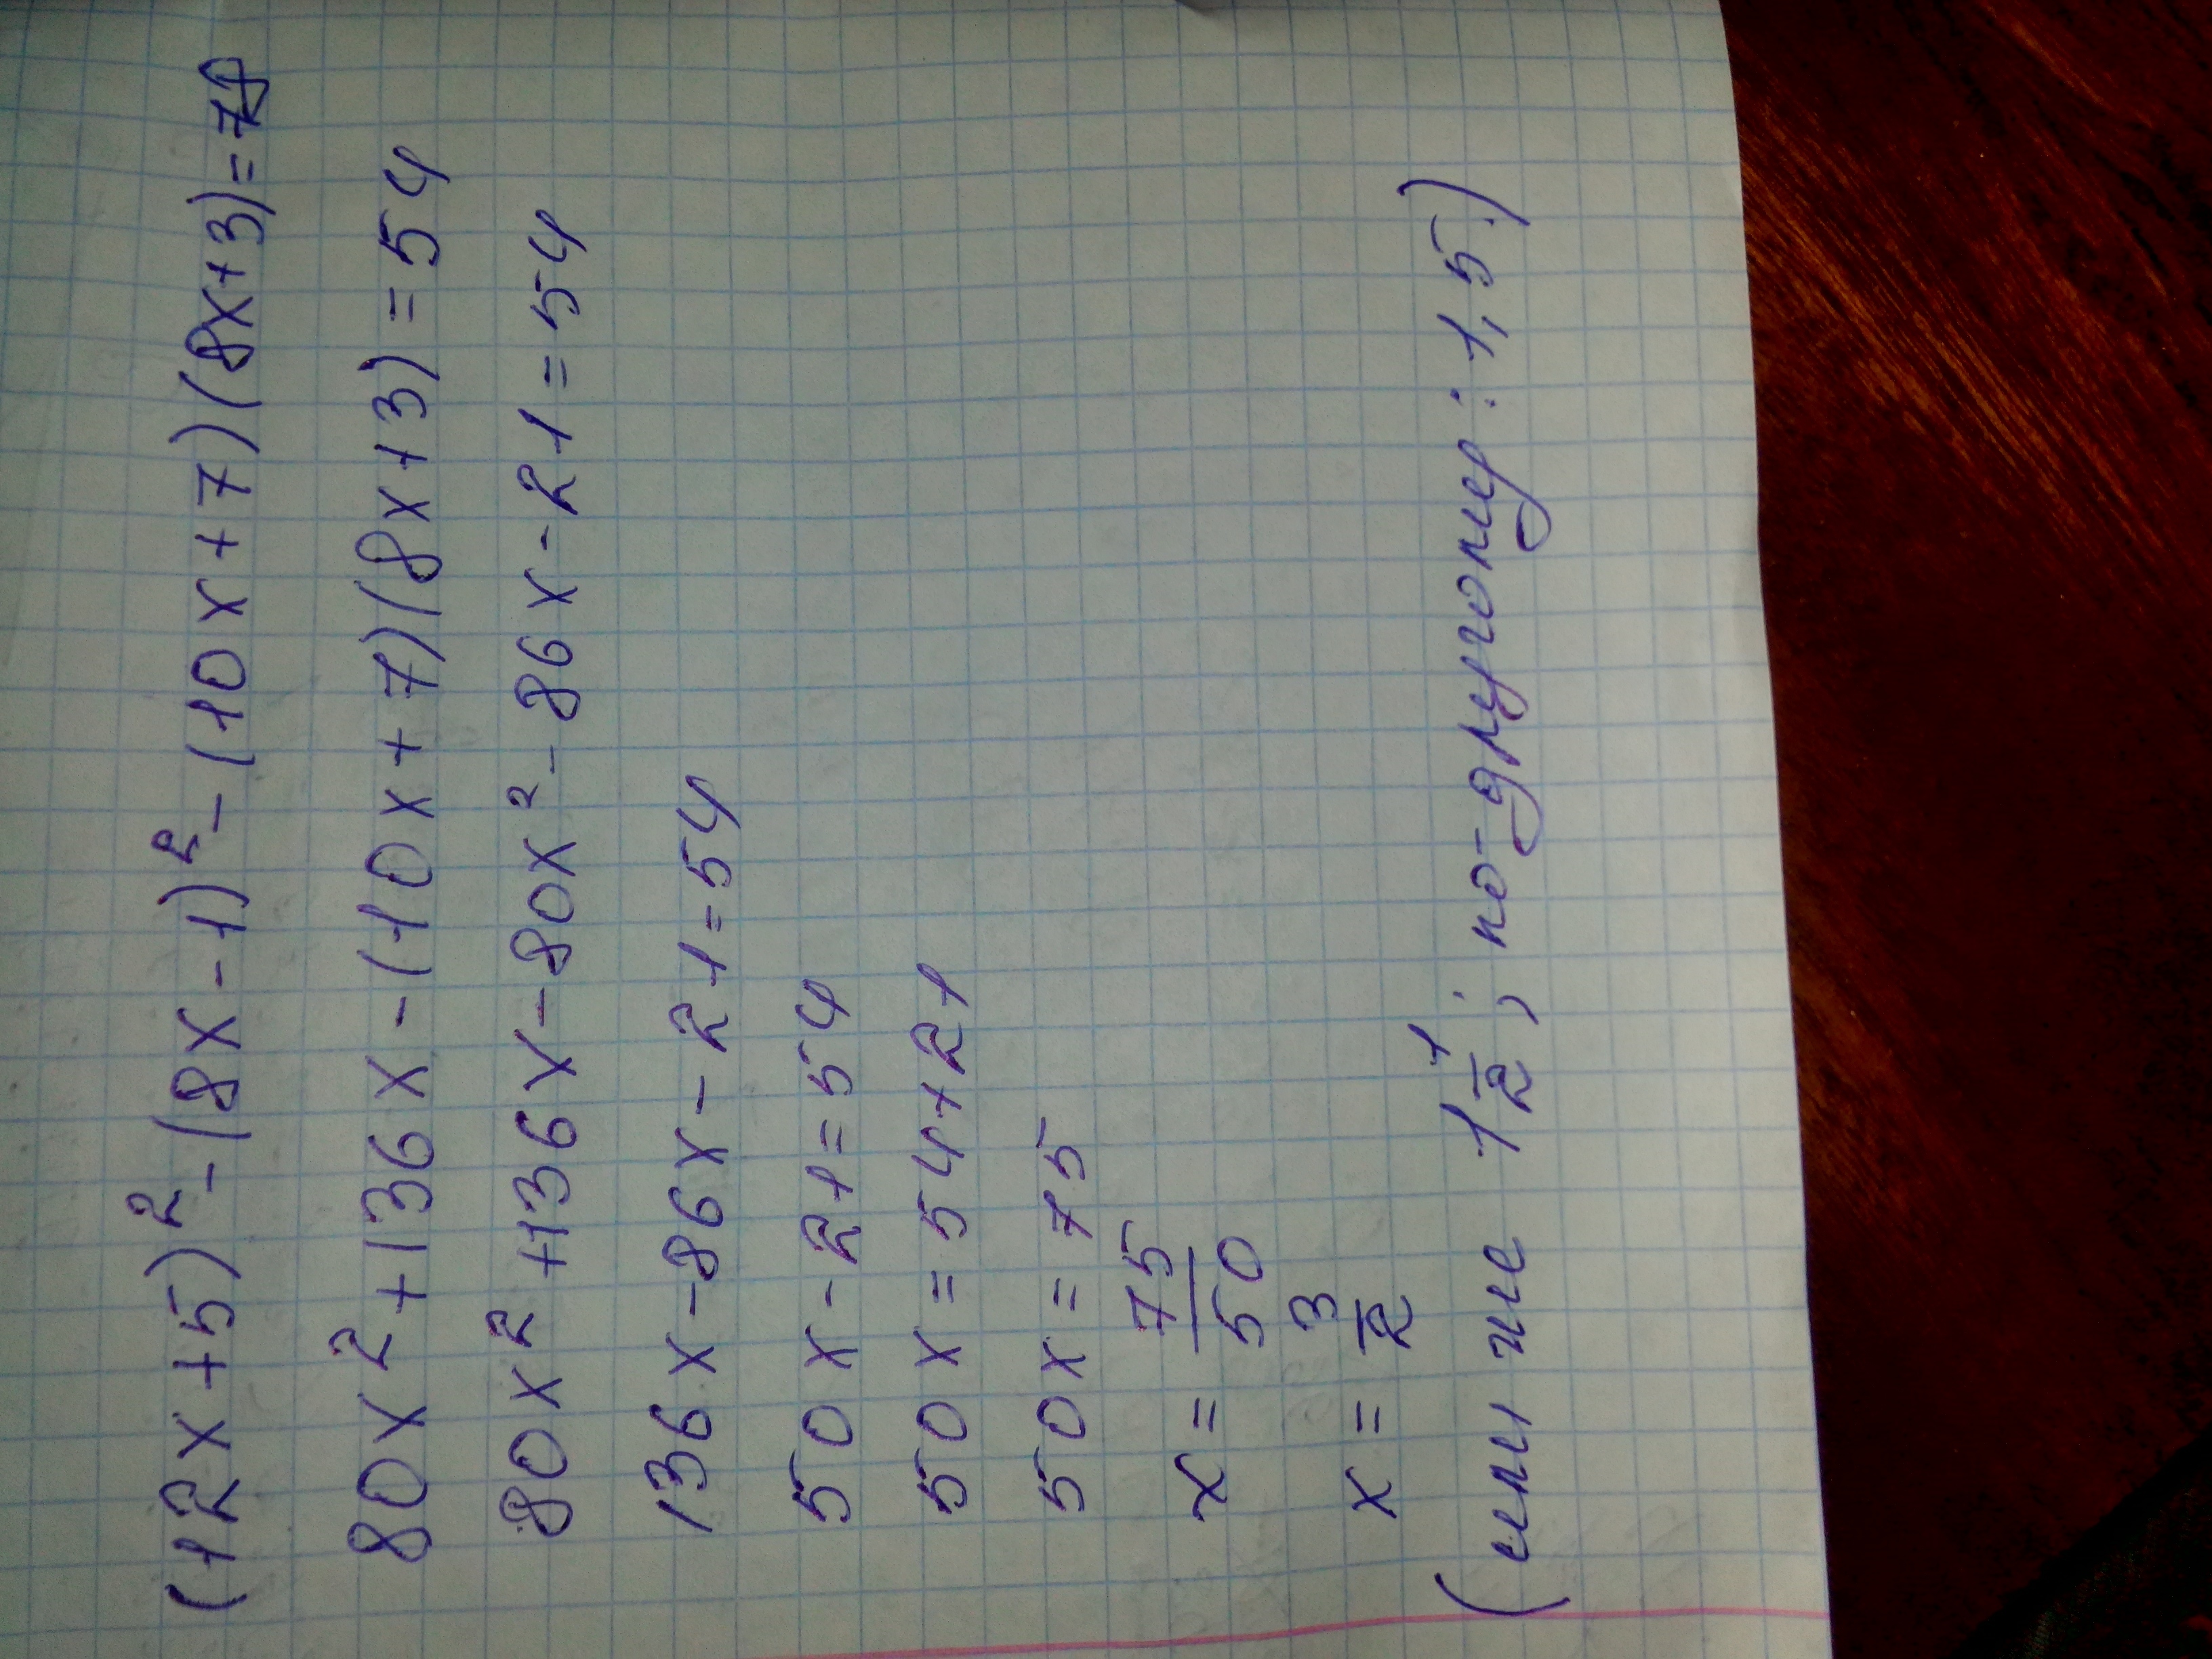 (12x+5)²-(8x-1)²-(10x+7)(8x+3)=78
80x²+136x-(10x+7)(8x+3)=54
80x²+136x-80x²-86x-21=54
136x-86x-21=54
50x-21=54
50x=54+21
50x=75
x=75/50
x=3/2
(или же 1 1/2; по-другому: 1,5.)